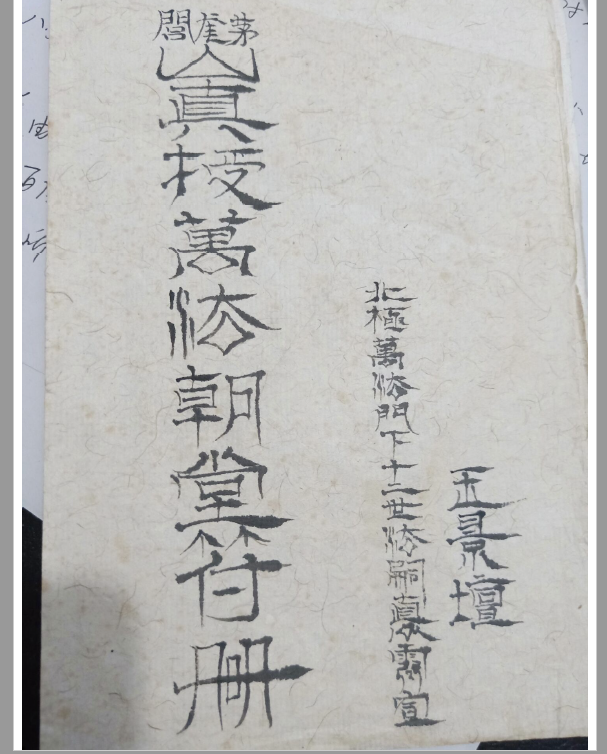 玉景壇
北極萬法門下十二世法嗣真宣
茅閭
山真授萬法朝堂符冊